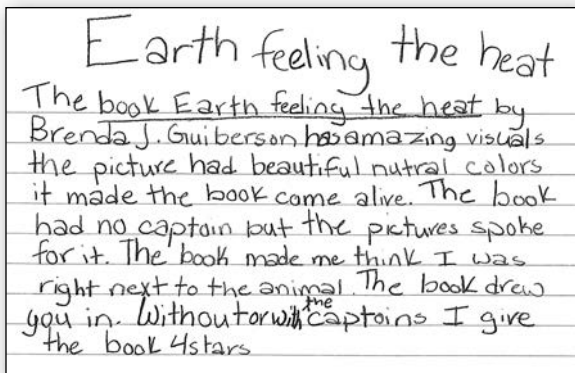 Earth feeling the heat
The book Earth feeling the heat by
Brenda J. Guiberson has amazing visuals
the picture had beautiful nutral colors
it made the book come alive. The book
had no captain but the pictures spoke
for it. The book made me think I was
right next to the animal. The book drew
you in. Without or with the captoins I give
the book 4stars